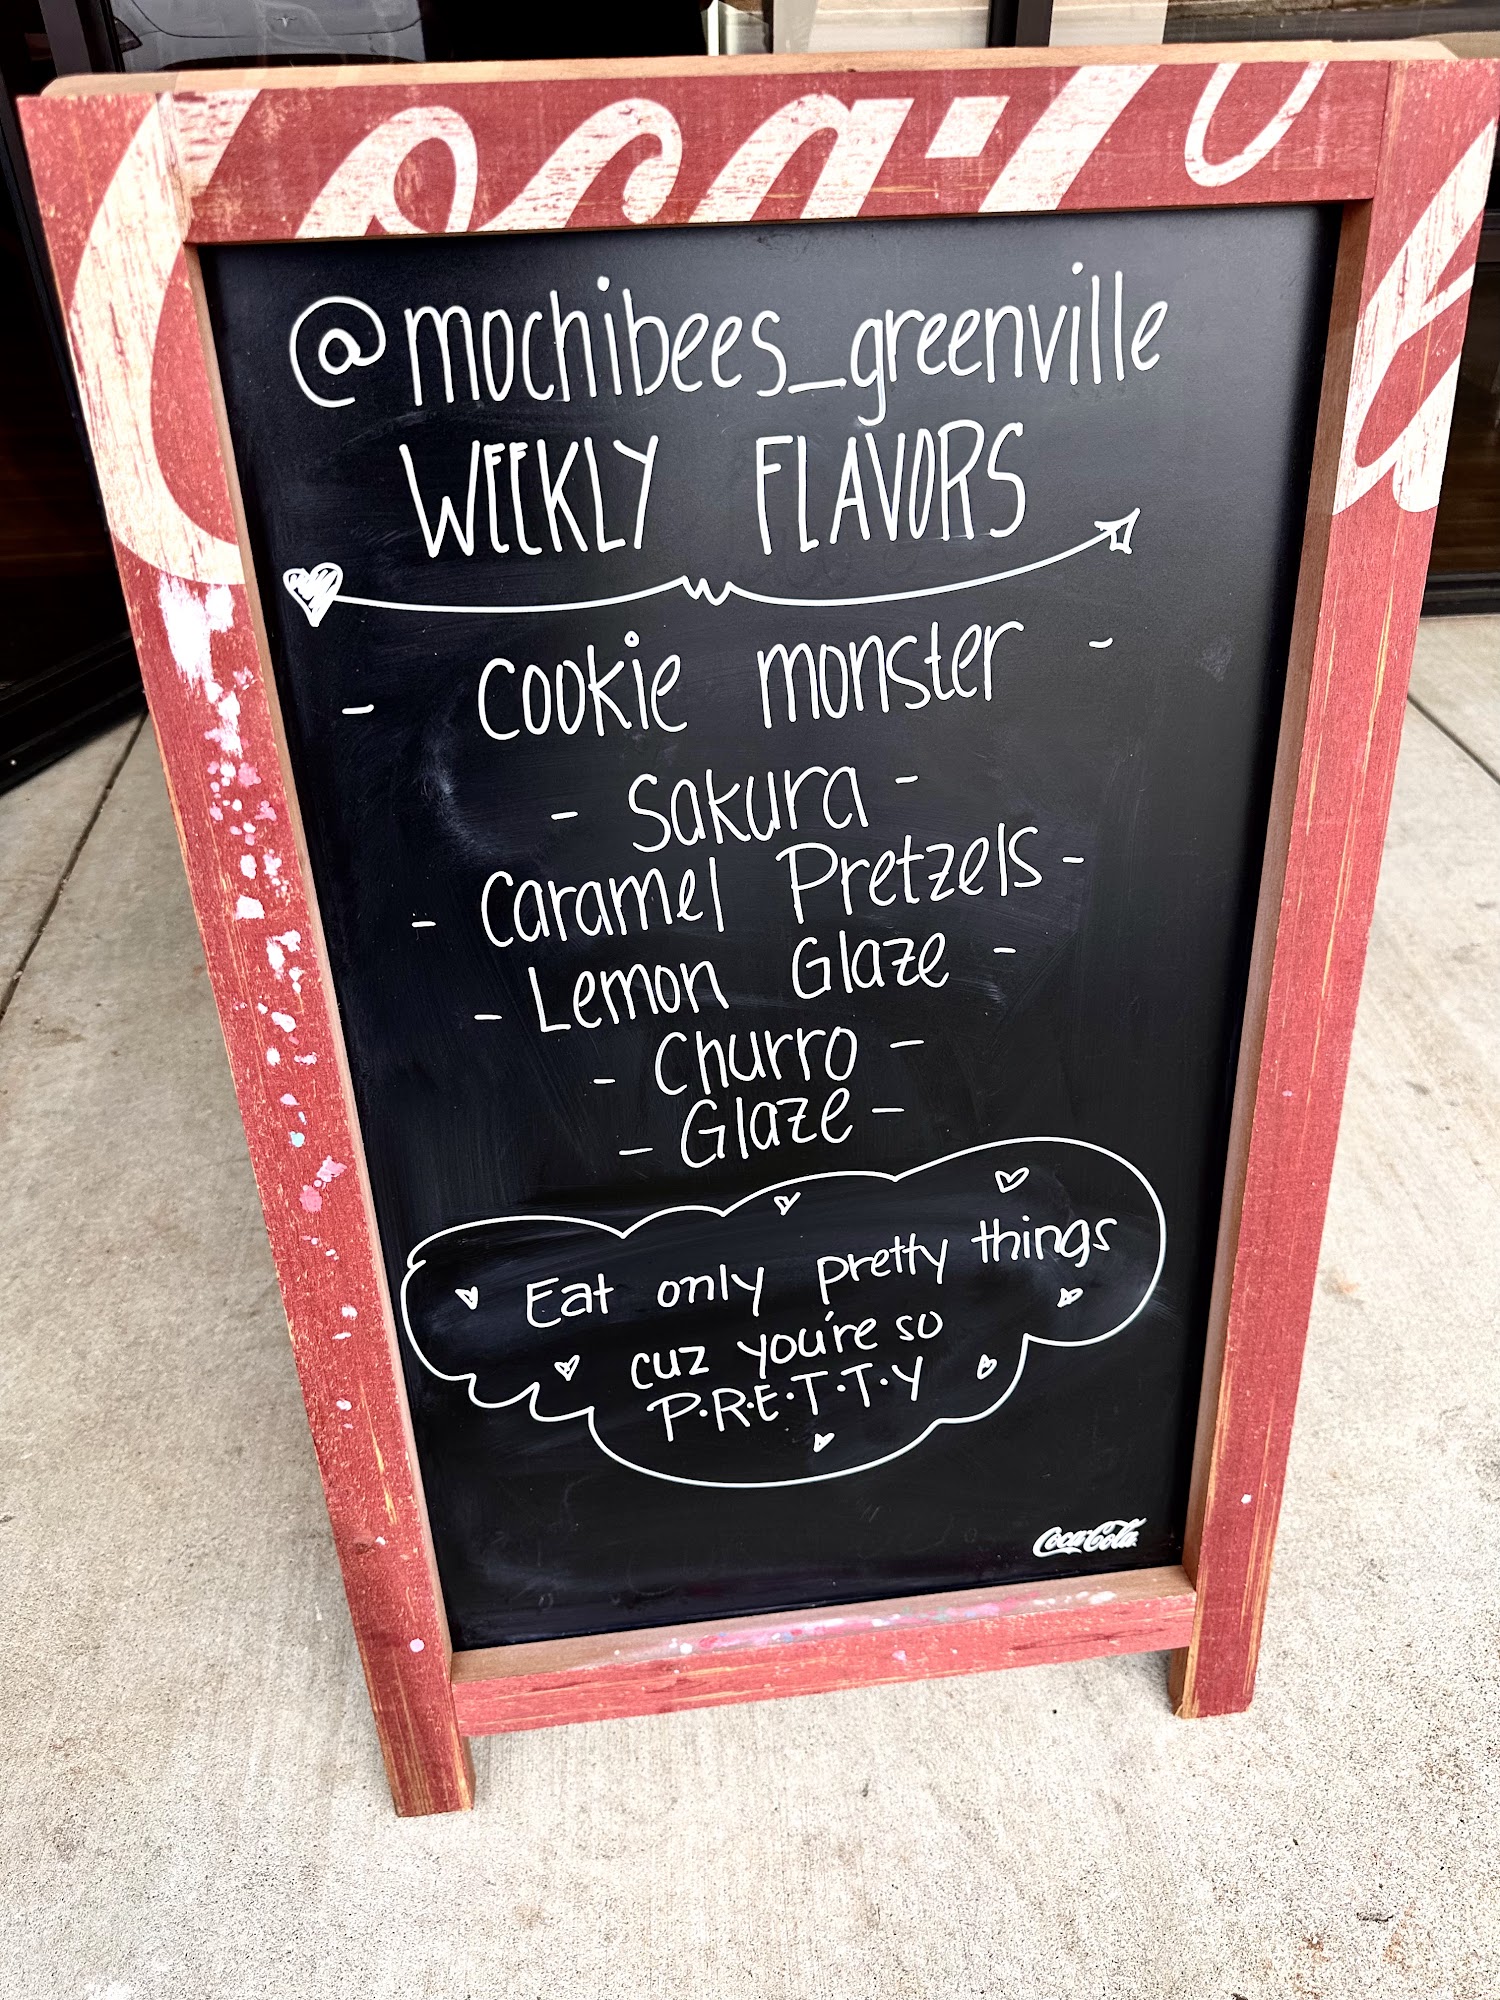 Coca-Co
@mochibees_greenville
WEEKLY FLAVORS
- Cookie monster -
- Sakura -
- Caramel Pretzels -
- Lemon Glaze -
- Churro -
- Glaze -
Eat only pretty things
cuz you're so
P.R.E.T.T.Y
Coca-Cola